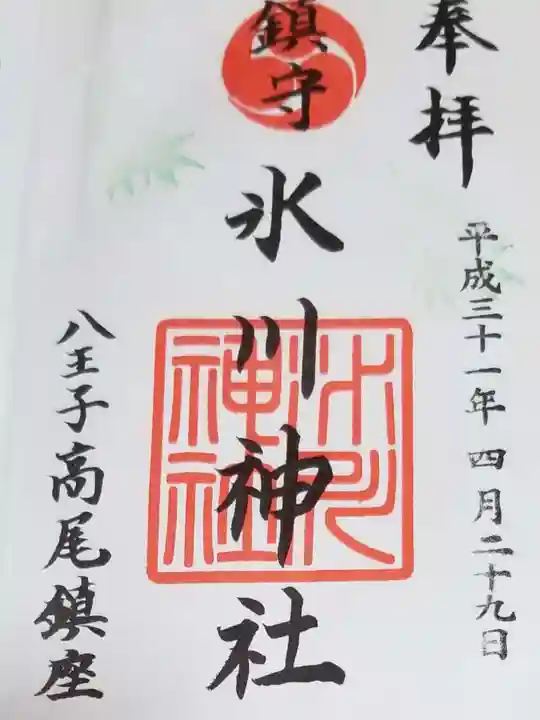 奉拝
平成三十一年 四月二十九日
鎮守
氷川神社
氷川
神社
八王子高尾鎮座